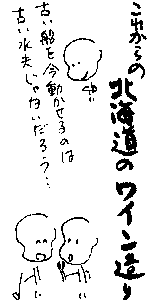 これからの
北海道のワイン造り
古い船を今動かせるのは
古い水夫じゃないだろう・・・